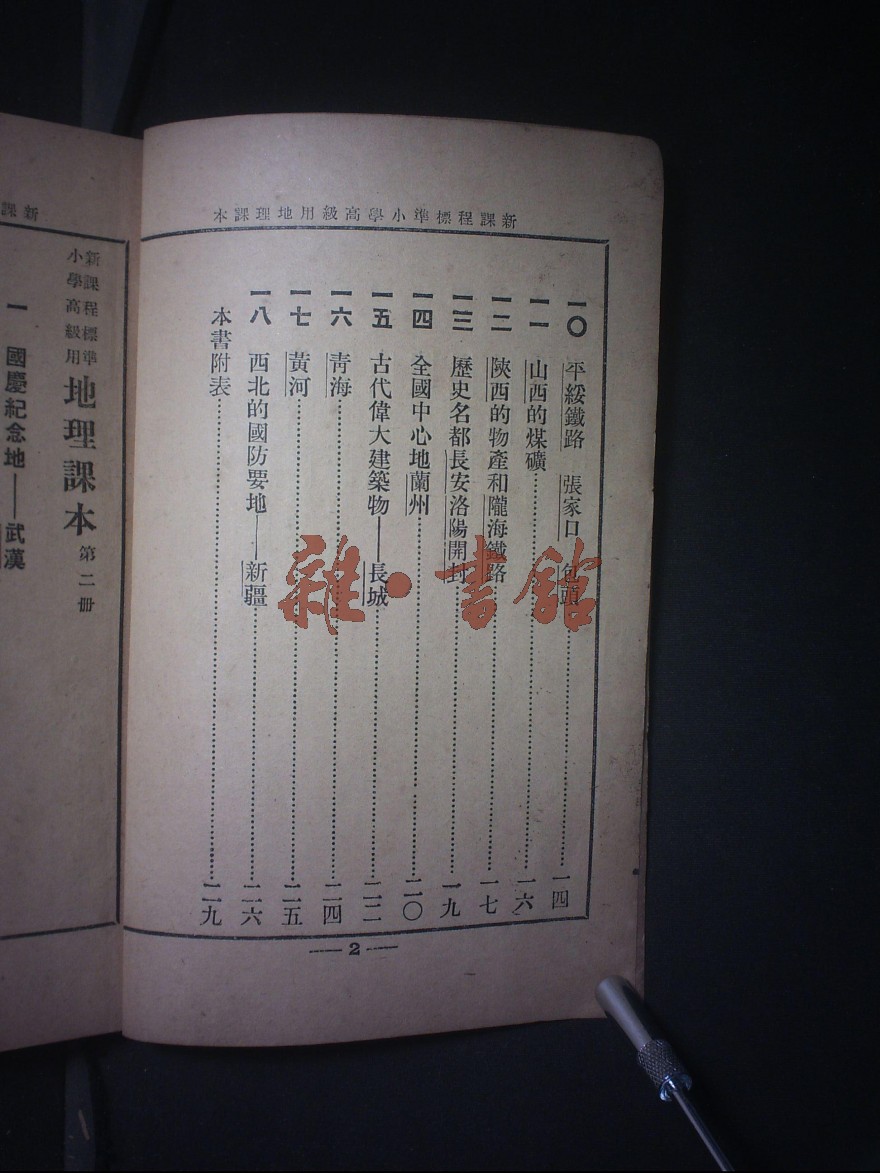 新課程標準小學高級用地理課本
一〇 平綏鐵路 張家口 包頭……一四
一一 山西的煤礦……一六
一二 陝西的物產和隴海鐵路……一七
一三 歷史名都長安洛陽開封……一九
一四 全國中心地蘭州……二〇
一五 古代偉大建築物——長城……二二
一六 青海……二四
一七 黃河……二五
一八 西北的國防要地——新疆……二六
本書附表……二九
— 2 —
新課
新課程標準
小學高級用
地理課本 第二册
一 國慶紀念地——武漢
雜·書館